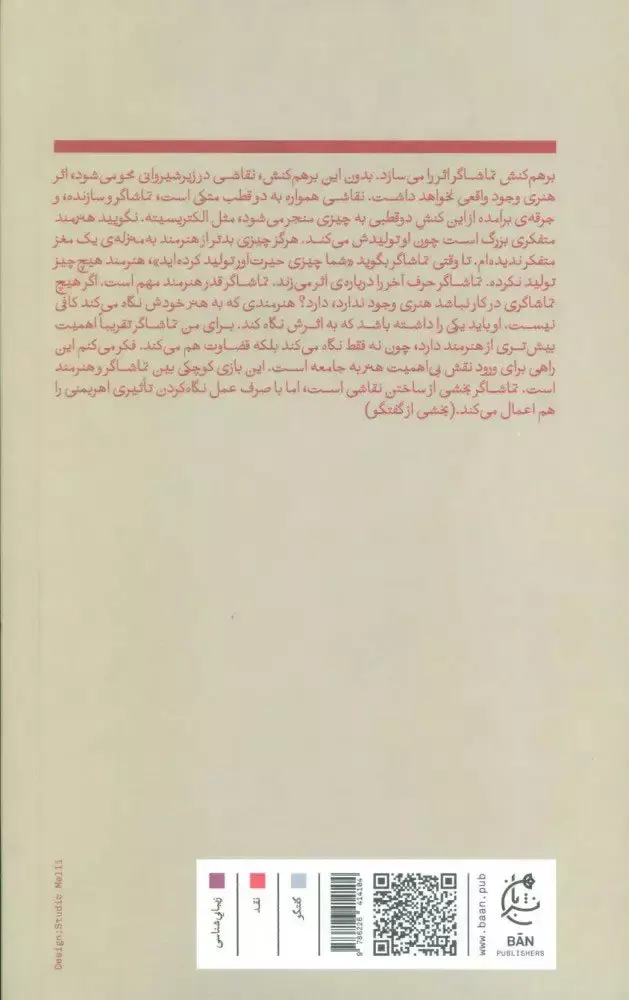 برهم‌کنش تماشاگر اثر را می‌سازد. بدون این برهم‌کنش، نقاشی در زیرشیروانی محو می‌شود، اثر
هنری وجود واقعی نخواهد داشت. نقاشی همواره به دو قطب متکی است، تماشاگر و سازنده، و
جرقه‌ی برآمده از این کنش دوقطبی به چیزی منجر می‌شود، مثل الکتریسیته. نگویید هنرمند
متفکری بزرگ است چون او تولیدش می‌کند. هرگز چیزی بدتر از هنرمند به منزله‌ی یک مغز
متفکر ندیده‌ام. تا وقتی تماشاگر بگوید «شما چیزی حیرت‌آور تولید کرده‌اید»، هنرمند هیچ چیز
تولید نکرده. تماشاگر حرف آخر را درباره‌ی اثر می‌زند. تماشاگر قدر هنرمند مهم است. اگر هیچ
تماشاگری در کار نباشد هنری وجود ندارد، دارد؟ هنرمندی که به هنر خودش نگاه می‌کند کافی
نیست. او باید یکی را داشته باشد که به اثرش نگاه کند. برای من تماشاگر تقریباً اهمیت
بیش‌تری از هنرمند دارد، چون نه فقط نگاه می‌کند بلکه قضاوت هم می‌کند. فکر می‌کنم این
راهی برای ورود نقش بی‌اهمیت هنر به جامعه است. این بازی کوچکی بین تماشاگر و هنرمند
است. تماشاگر بخشی از ساختن نقاشی است، اما با صرف عمل نگاه‌کردن تأثیری اهریمنی را
هم اعمال می‌کند. (بخشی از گفتگو)
Design:Studio Melli
زیبایی‌شناسی
نقد
گفتگو
9 786226 414104
www.baan.pub
نشر بان
BĀN
PUBLISHERS